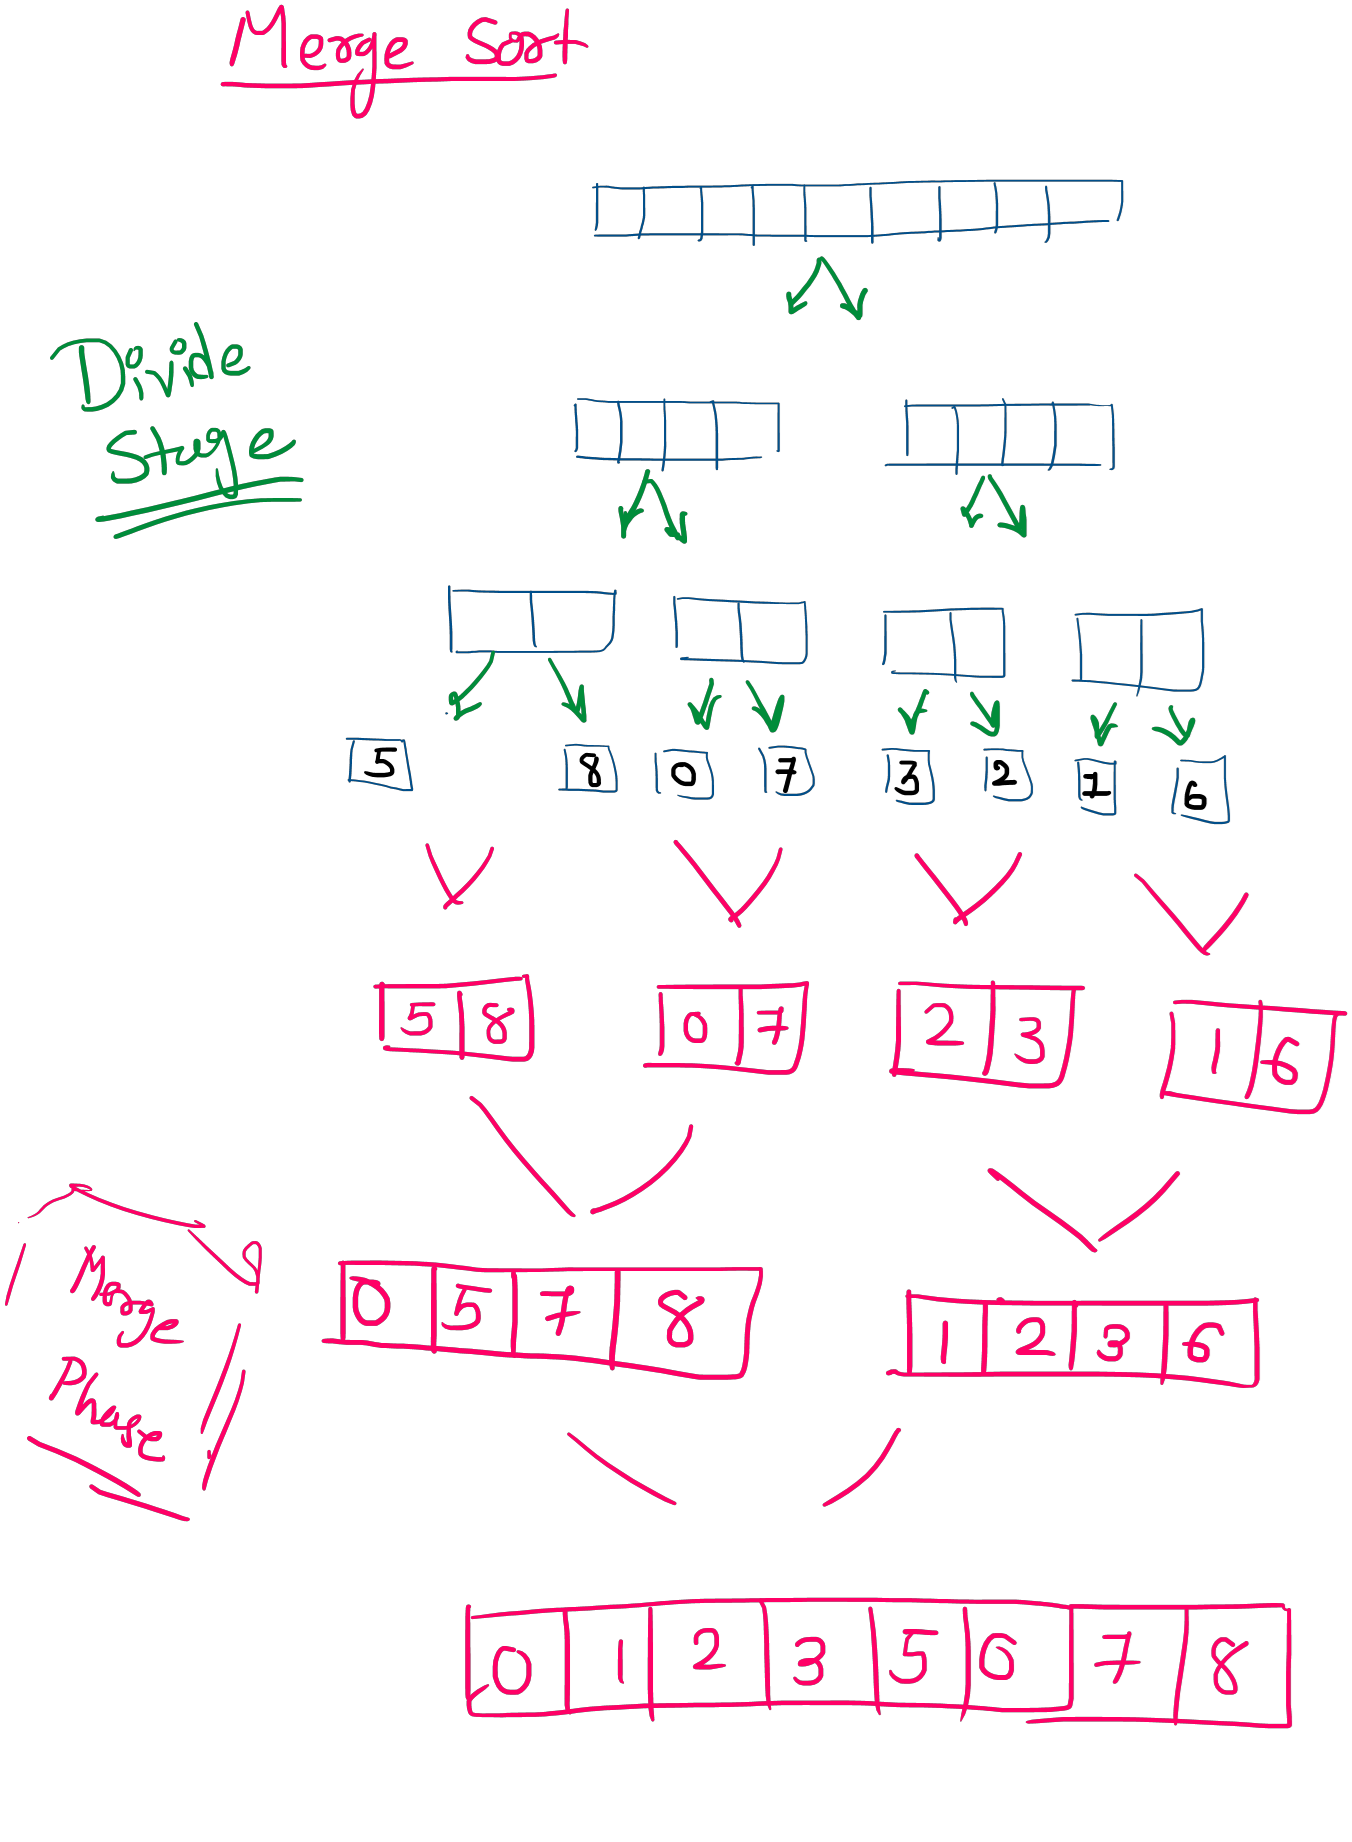 Merge Sort
Divide
Stage
5 8 0 7 3 2 1 6
5 8 0 7 2 3 1 6
Merge
Phase
0 5 7 8 1 2 3 6
0 1 2 3 5 6 7 8